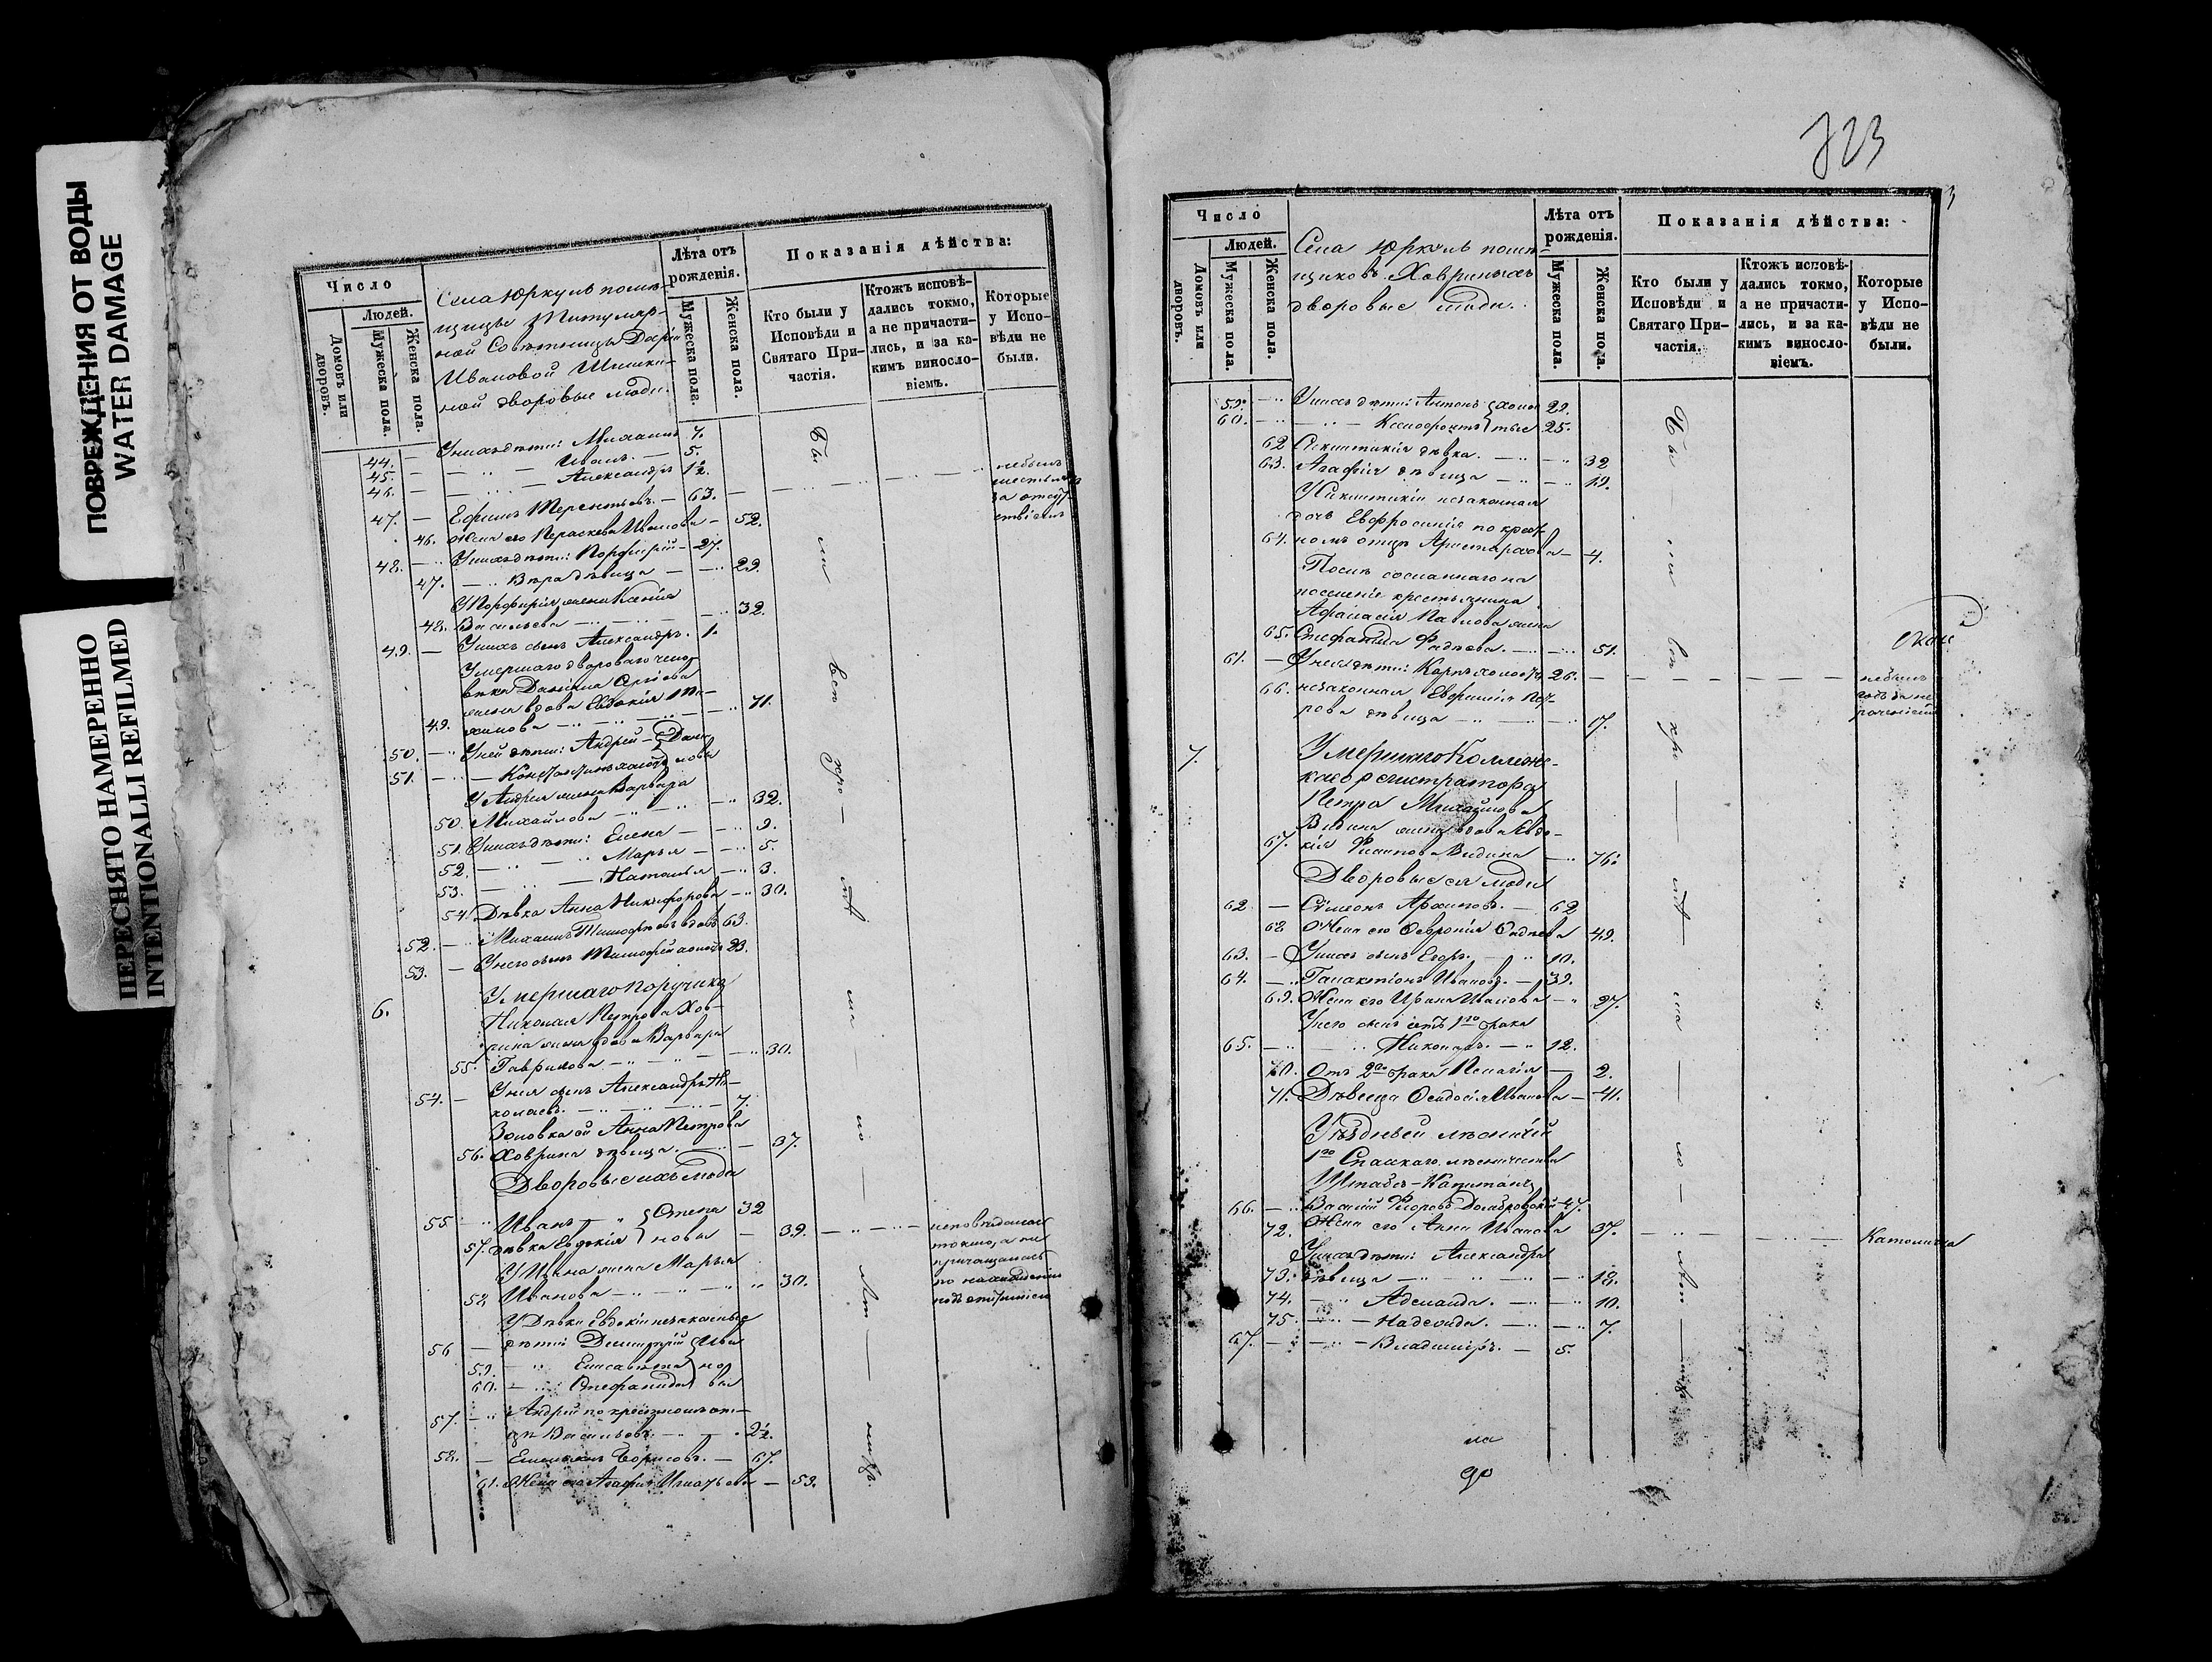 ПОВРЕЖДЕНИЯ ОТ ВОДЫ
WATER DAMAGE
ПЕРЕСНЯТО НАМЕРЕННО
INTENTIONALLI REFILMED
Число
Людей.
Домовъ или дворовъ.
Мужеска пола.
Женска пола.
Села Юркуль помѣ-
щицы Титуляр-
ной Совѣтницы Дарьи
Ивановой Шишки-
ной дворовые люди.
Лѣта отъ рожденія.
Мужеска пола.
Женска пола.
Показанія дѣйства:
Кто были у Исповѣди и Святаго Причастія.
Ктожъ исповѣдались токмо, а не причастились, и за какимъ винословіемъ.
Которые у Исповѣди не были.
44. — У нихъ дѣти: Михаилъ 7.
45. — Иванъ. — 5.
46. — Александръ 1½.
47. — Ефимъ Терентьевъ. — 63.
за отсут-
ствіемъ
46. Жена его Параскева Иванова — 52.
48. — У нихъ дѣти: Порфирій — 27.
47. — Вѣра дѣвица — 29.
У Порфирія жена Ксенія
48. Васильева — 32.
49. — У нихъ сынъ Александръ. 1.
Умершаго двороваго чело-
вѣка Даніила Сергіева
жена вдова Евдокія
49. 71.
50. — У ней дѣти: Андрей — Дани-
51. — Константинъ холостъ лова
У Андрея жена Варвара
50. Михайлова — 32.
51. У нихъ дѣти: Елена — 9.
52. — Марья — 5.
53. — Наталья — 3.
54. Дѣвка Анна Никифорова — 30.
52. — Михаилъ Тимофѣевъ вдовъ 63.
53. — У него сынъ Тимофей холостъ 23.
6. Умершаго Поручика
Николая Петрова Хов-
рина жена вдова Варвара
55. Гаврилова — 30.
54. — У нея сынъ Александръ Ни-
колаевъ. — 7.
Золовка ей Анна Петрова
56. Ховрина дѣвица. — 37.
Дворовые ихъ люди
55 — Иванъ — Степа 32
57. дѣвка Евдокія новы — 39.
исповѣдалась
токмо, а не
причащалась
по нахожденію
подъ епитиміею
У Ивана жена Марья
58 Иванова — 30.
У Дѣвки Евдокіи незаконные
56 — дѣти Димитрій Ива
59. — Елисавета но
60. — Стефанида вы
57. — Андрей по крестномъ от-
цѣ Васильевъ. — 2½.
58. — Емельянъ Борисовъ. — 67.
61. Жена его Агафья Игнатьева — 53.
Бы — ли — всѣ — хри — ст — іа — но — лют — ниже
723
Число
Людей.
Домовъ или дворовъ.
Мужеска пола.
Женска пола.
Села Юркуль помѣ-
щиковъ Ховриныхъ
дворовые люди.
Лѣта отъ рожденія.
Мужеска пола.
Женска пола.
Показанія дѣйства:
Кто были у Исповѣди и Святаго Причастія.
Ктожъ исповѣдались токмо, а не причастились, и за какимъ винословіемъ.
Которые у Исповѣди не были.
59. — У нихъ дѣти: Антонъ холос 29.
60. — Ксенофонтъ тые 25.
62 дѣвка. — 32
63. Агафія дѣвица — 19.
незаконная
дочь Евфросинія по крест-
64. номъ отцѣ Аристархова — 4.
Послѣ сосланнаго на
поселеніе крестьянина
Афанасія Павлова жена
65. Стефанида Фадѣева. — 51.
61. — У нея дѣти: Карпъ холостъ 26.
66. незаконная Ефимія Пет-
рова дѣвица — 17.
7. Умершаго Коллежс-
каго регистратора
Петра Михайлова
Видина жена вдова Евдо-
67. кія Филипова Видина — 76.
Дворовые ея люди
62. — Симеонъ Архиповъ. — 62
68 Жена его Феврония Фадѣева 49.
63. — У нихъ сынъ Егоръ. — 10.
64. — Галактіонъ Ивановъ. — 39.
69. Жена его Ирина Иванова — 27.
У него сынъ отъ 1го брака
65. — Николай. — 12.
70. Отъ 2го брака Пелагія — 2.
71. Дѣвица Феодосія Иванова — 41.
Уѣздный лѣсничій
1го Спаскаго лѣсничества
Штабсъ-Капитанъ
66. — Василій Федоровъ Домбровскій 47.
72. Жена его Анна Иванова 37. — Католичка
У нихъ дѣти: Александра
73. дѣвица — 12.
74. — Аделаида. — 10.
75. — Надежда. — 7.
67. — Владиміръ. — 5.
Бы — ли — всѣ — хри — ст — іа — но — лют — ниже